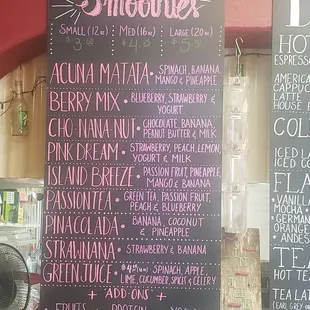 Smoothies
Small (12oz) Med (16oz) Large (20oz)
Acuna Matata • Spinach, Banana,
Mango & Pineapple
Berry Mix • Blueberry, Strawberry &
Yogurt
Cho-Nana-Nut • Chocolate, Banana,
Peanut Butter & Milk
Pink Dream • Strawberry, Peach, Lemon,
Yogurt & Milk
Island Breeze • Passion Fruit, Pineapple,
Mango & Banana
Passiontea • Green Tea, Passion Fruit,
Peach & Blueberry
Pinacolada • Banana, Coconut
& Pineapple
Strawnana • Strawberry & Banana
Green Juice • Spinach, Apple,
Lime, Cucumber, Spice & Celery
+ Add-Ons +
Fruits Protein
Hot
Espresso
Latte
House
Iced
Iced Co
Fla
Vanilla
Mocha
• German
Orange
• Andes
Tea
Hot Tea
Tea Lat
(Earl Grey or